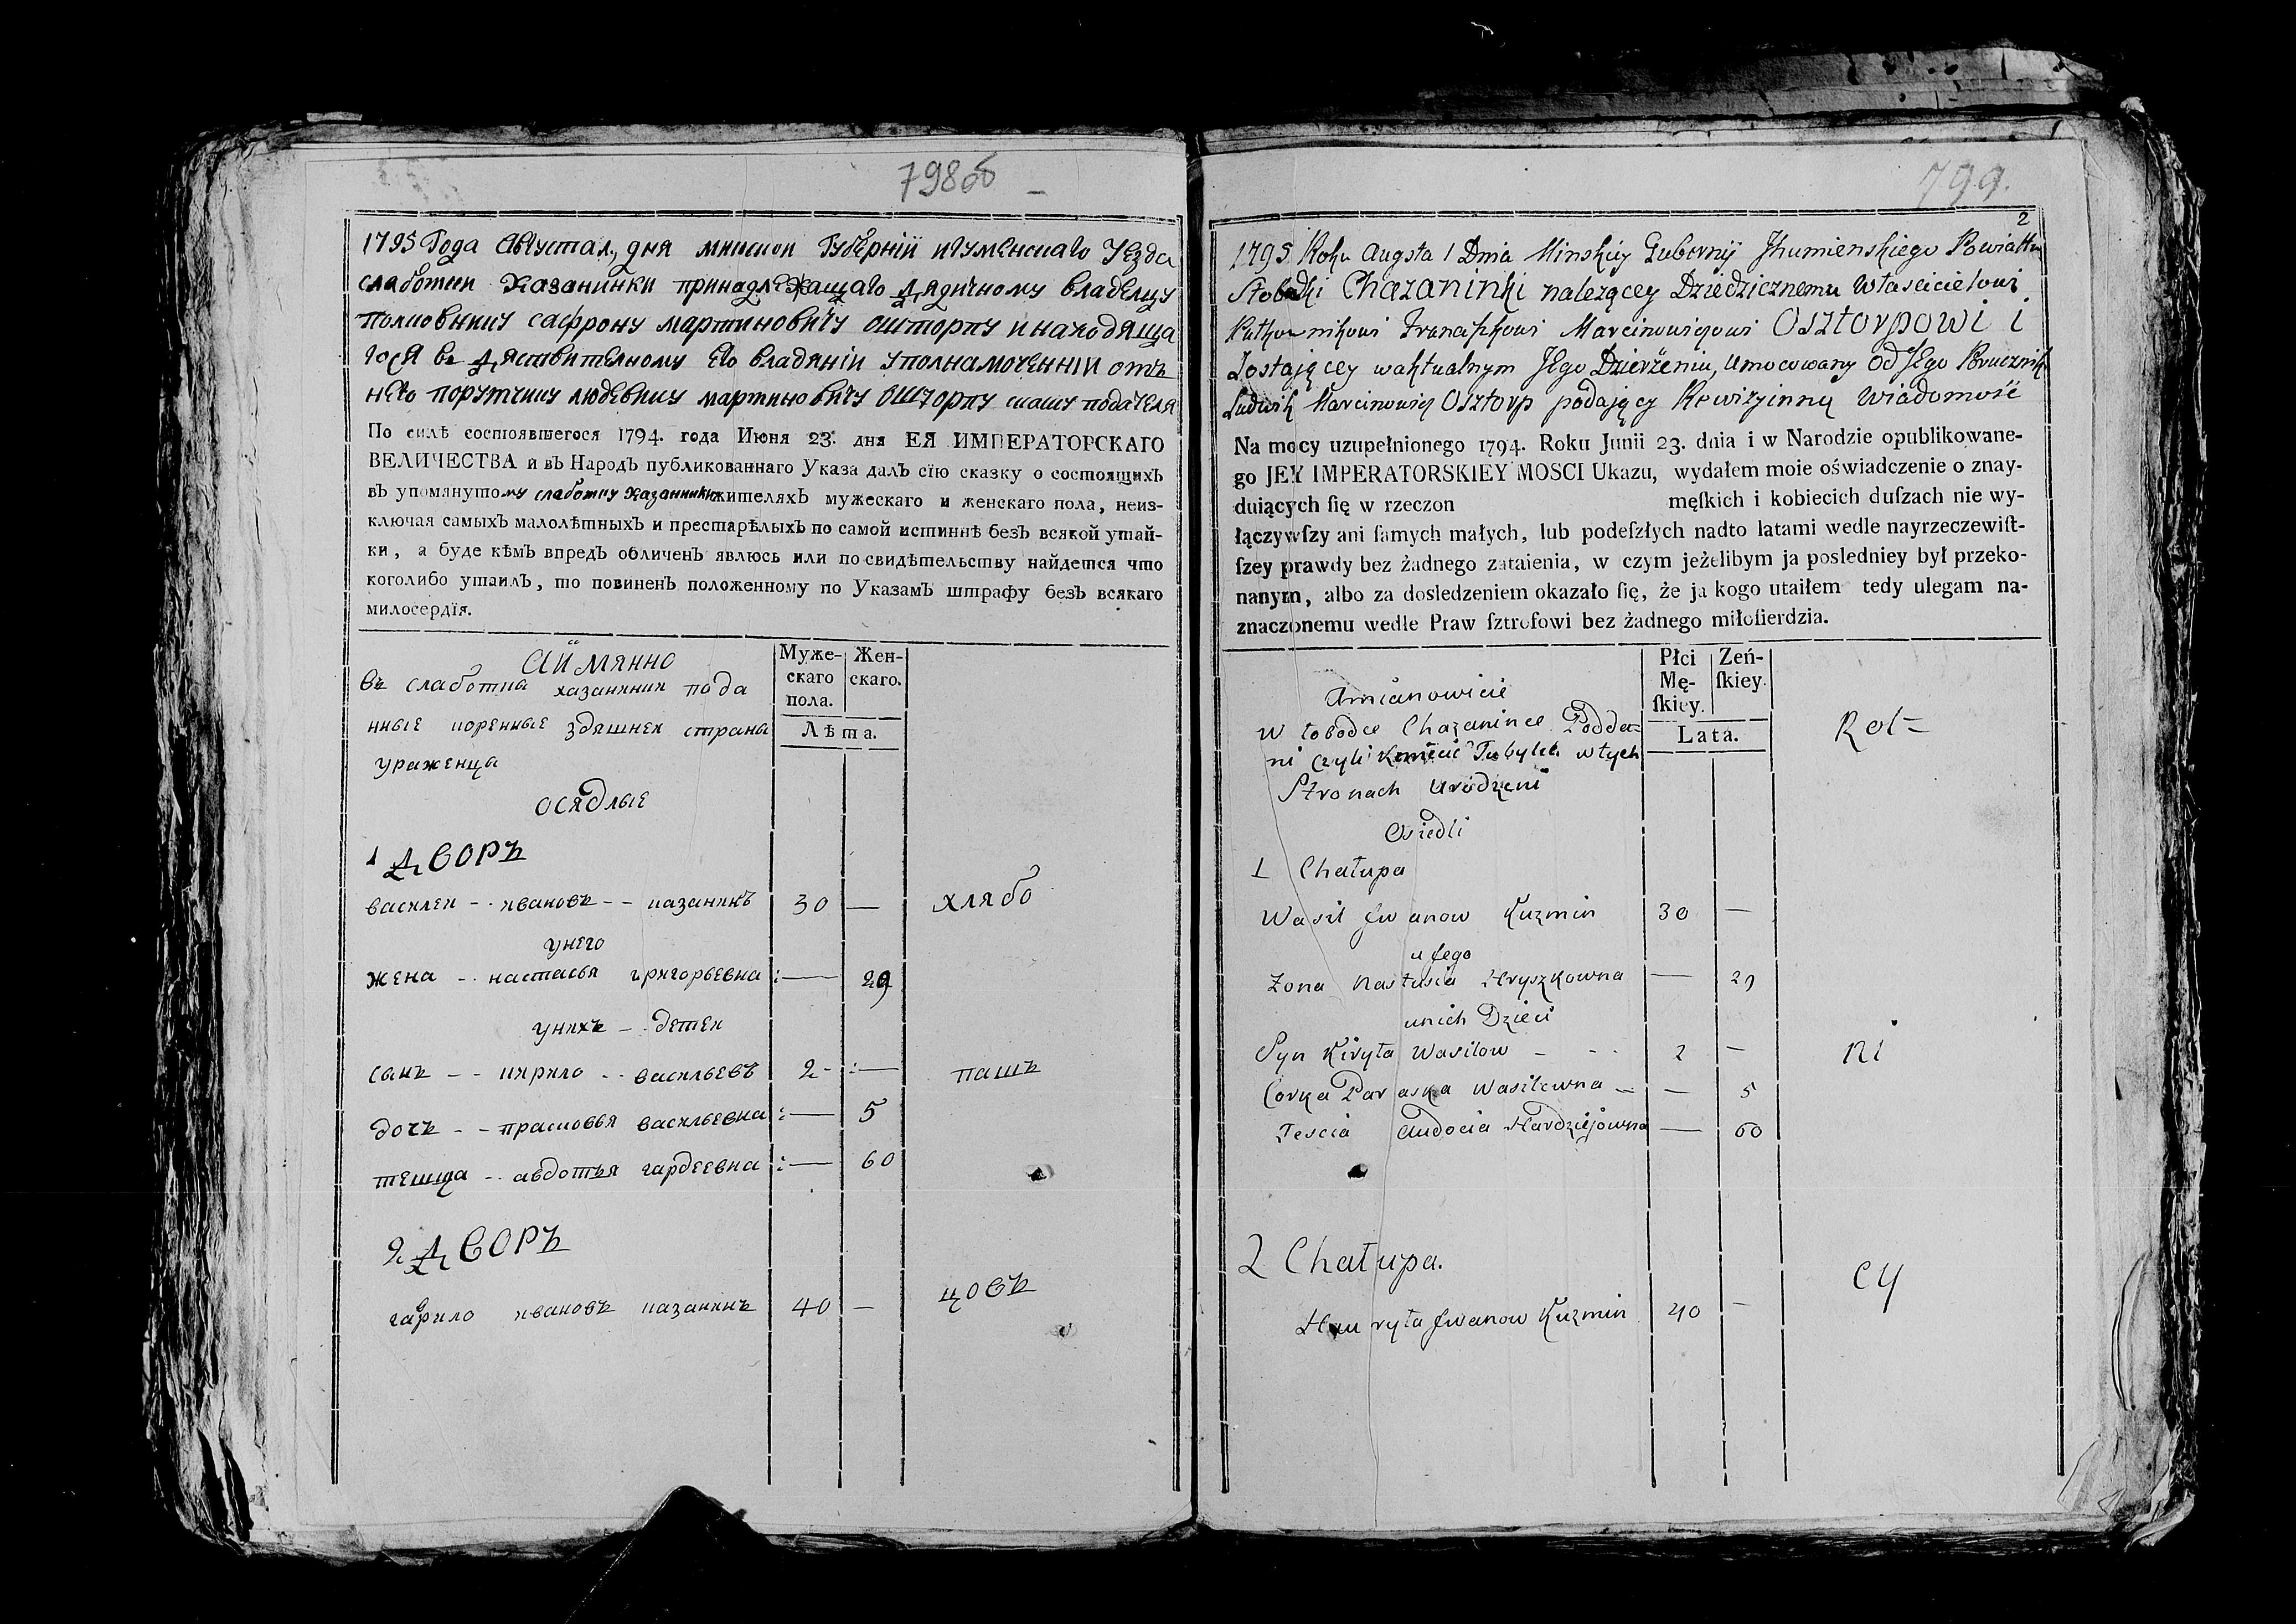 798об
1795 Года Августа 1, дня минскои Губернiи игуменскаго Уезда
слаботки Хазанинки принадлежащаго дядичному владелцу
полковнику сафрону мартиновичу оштορпу и находяща
гося въ дяствителному его владянiи уполнамоченнiи отъ
него поручику людевику мартиновичу Ошторпу скаску подателя
По силѣ состоявшегося 1794. года Июня 23. дня ЕЯ ИМПЕРАТОРСКАГО
ВЕЛИЧЕСТВА и въ Народъ публикованнаго Указа далъ сїю сказку о состоящихъ
въ упомянутому слаботку Хазанинки жителяхъ мужескаго и женскаго пола, неиз-
ключая самыхъ малолѣтныхъ и престарѣлыхъ по самой истиннѣ безъ всякой утай-
ки, а буде кѣмъ впредъ обличенъ явлюсь или по свидѣтельству найдется что
коголибо утаилъ, то повиненъ положенному по Указамъ штрафу безъ всякаго
милосердїя.
Муже-
скаго
пола.
Жен-
скаго.
Лѣта.
Аймянно
въ слаботки хазанинки пода
нные коренные здяшнеи страны
ураженца
осядлые
1 Дворъ
василеи -- ивановъ -- казанинъ 30 —
хлябо
унего
жена -- настасья григорьевна — 29
унихъ -- детеи
санъ -- кирило -- васильевъ 2 —
пашъ
дочъ -- прасковья васильевна — 5
тешща -- авдотья гардеевна — 60
2 Дворъ
гаврило ивановъ казанинъ 40 —
цовъ
799.
2
1795 Roku Augsta 1 Dnia Minskiey Gubernij Jhumienskiego Powiattu
Słobodki Chazaninki nalezącey Dziedzicznemu Włascicielowi
Pułkownikowi Franciszkowi Marcinowiczowi Osztorpowi i
Zostającey waktualnym Jego Dzierżeniu, Umocowany Od Jego Porucznik
Ludwik Marcinowicz Osztorp podający Rewizijnną Wiadomość
Na mocy uzupełnionego 1794. Roku Junii 23. dnia i w Narodzie opublikowane-
go JEY IMPERATORSKIEY MOSCI Ukazu, wydałem moie oświadczenie o znay-
duiących ſię w rzeczon męſkich i kobiecich duſzach nie wy-
łączywſzy ani ſamych małych, lub podeſzłych nadto latami wedle nayrzeczewiſt-
ſzey prawdy bez żadnego zataienia, w czym jeżelibym ja posledniey był przeko-
nanym, albo za dosledzeniem okazało ſię, że ja kogo utaiłem tedy ulegam na-
znaczonemu wedle Praw ſztrofowi bez żadnego miłoſierdzia.
Płci
Mę-
ſkiey.
Zeń-
ſkiey.
Lata.
Amianowicie
w łobodce Chazanince Podda-
ni czyli Kmiecie Tubylce wtych
Stronach Urodzeni
Rol-
Osiedli
1 Chałupa
Wasil Jwanow Kuzmin 30 —
u Jego
Zona Nastusia Hryszkowna — 29
unich Dzieci
Syn Kiryła Wasilow - - - 2 —
ni
Corka Paraska Wasilewna — — 5
Tescia Audocia Hardziejowna — 60
2 Chałupa.
Hauryła Jwanow Kuzmin 40 —
cy